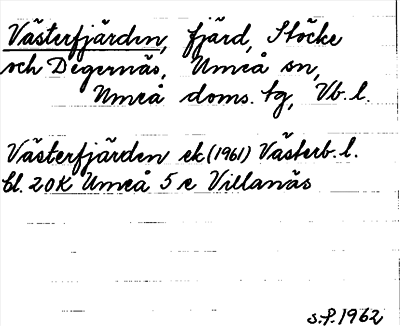 Västerfjärden, fjärd, Stöcke
och Degernäs, Umeå sn,
Umeå doms. tg, Vb. l.
Västerfjärden ek (1961) Västerb. l.
bl. 20K Umeå 5 e Villanäs
s.f. 1962